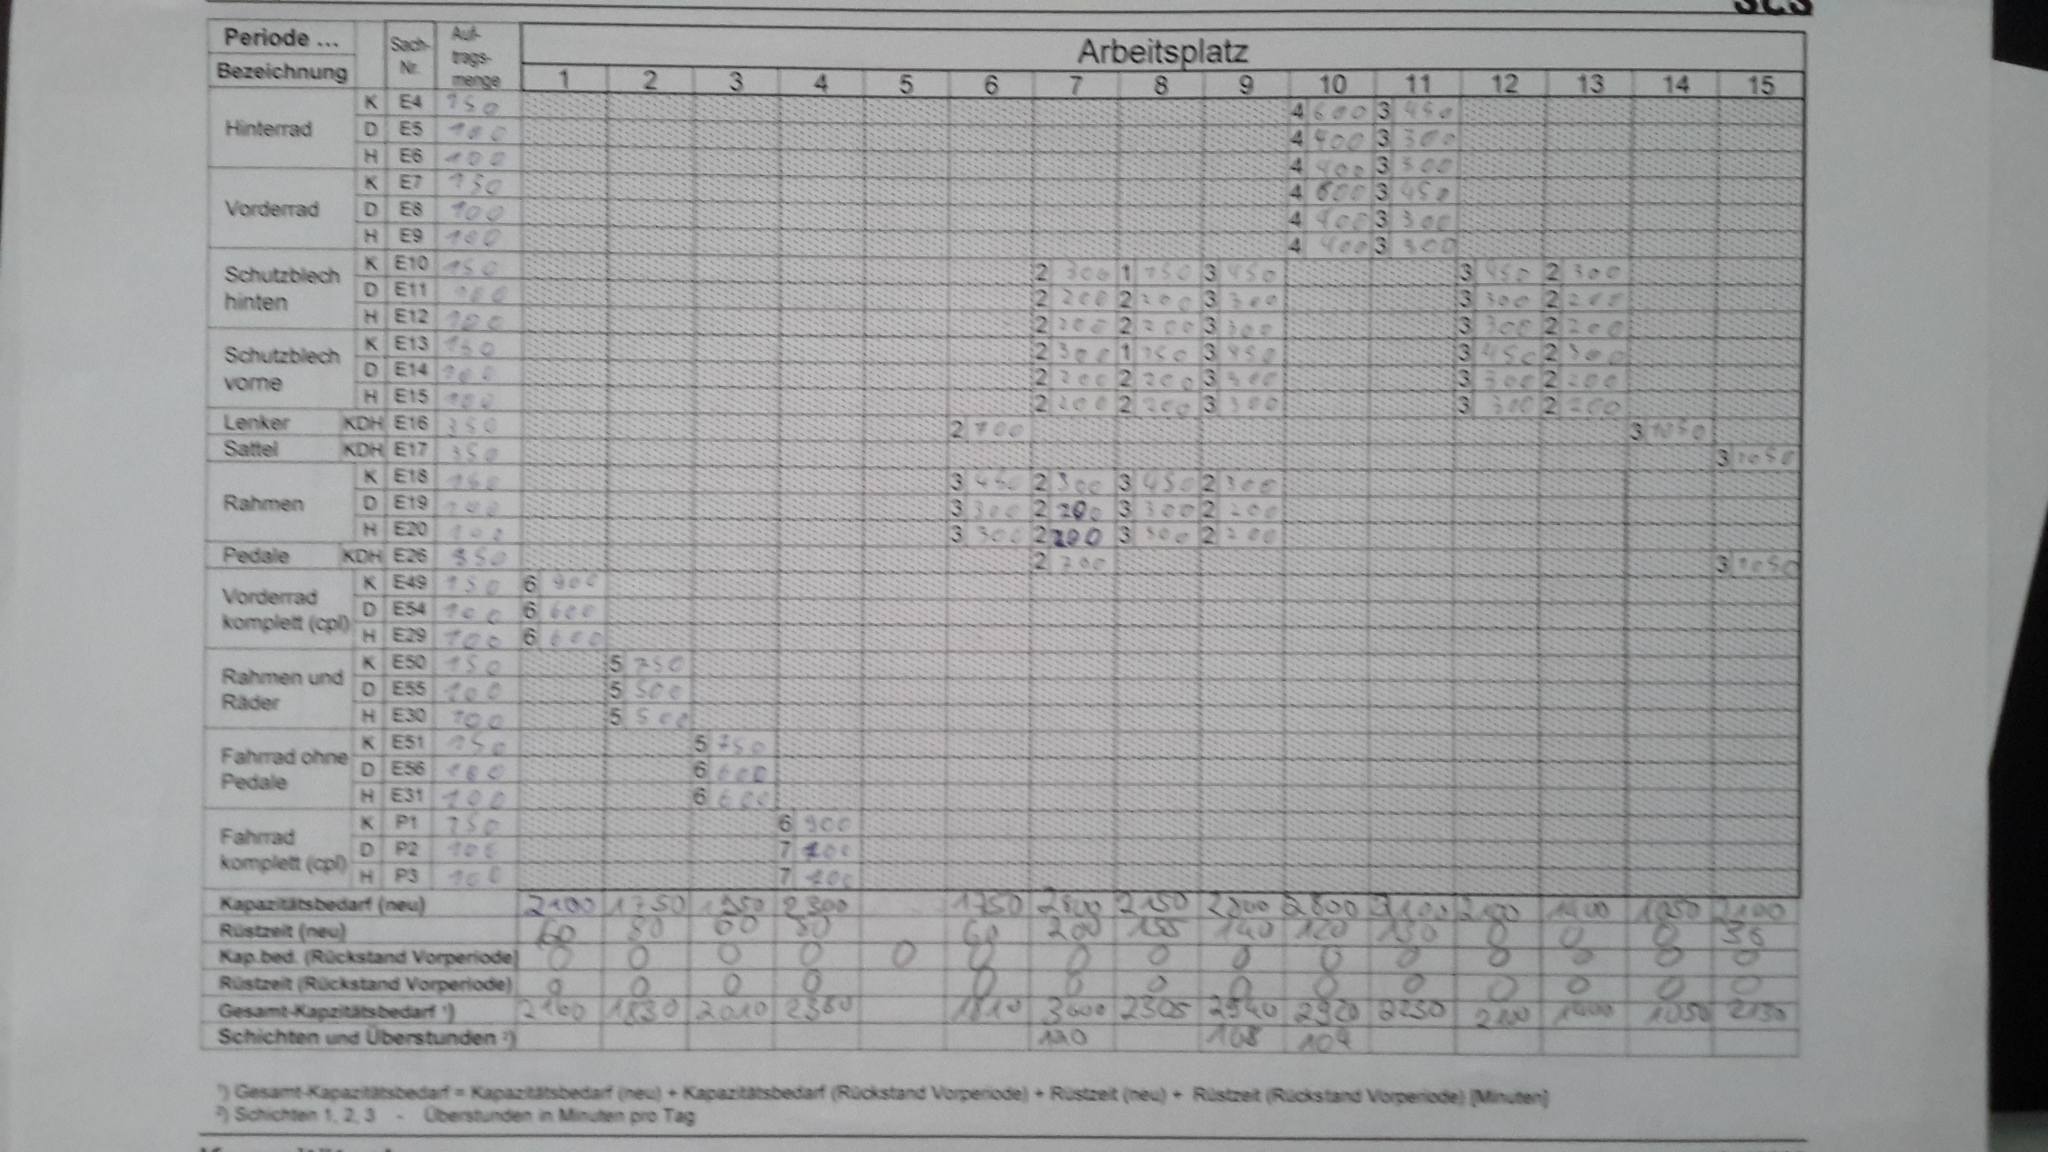 Periode ... Sach-Nr. Auf-trags-menge Arbeitsplatz
Bezeichnung 1 2 3 4 5 6 7 8 9 10 11 12 13 14 15
Hinterrad K E4 150 4 600 3 450
D E5 100 4 400 3 300
H E6 100 4 400 3 300
Vorderrad K E7 150 4 600 3 450
D E8 100 4 400 3 300
H E9 100 4 400 3 300
Schutzblech hinten K E10 150 2 300 1 150 3 450 3 450 2 300
D E11 100 2 200 2 200 3 300 3 300 2 200
H E12 100 2 200 2 200 3 300 3 300 2 200
Schutzblech vorne K E13 150 2 300 1 150 3 450 3 450 2 300
D E14 100 2 200 2 200 3 300 3 300 2 200
H E15 100 2 200 2 200 3 300 3 300 2 200
Lenker KDH E16 350 2 700 3 1050
Sattel KDH E17 350 3 1050
Rahmen K E18 150 3 450 2 300 3 450 2 300
D E19 100 3 300 2 200 3 300 2 200
H E20 100 3 300 2 200 3 300 2 200
Pedale KDH E26 350 2 700 3 1050
Vorderrad komplett (cpl) K E49 150 6 900
D E54 100 6 600
H E29 100 6 600
Rahmen und Räder K E50 150 5 750
D E55 100 5 500
H E30 100 5 500
Fahrrad ohne Pedale K E51 150 5 750
D E56 100 6 600
H E31 100 6 600
Fahrrad komplett (cpl) K P1 150 6 900
D P2 100 7
H P3 100 7
Kapazitätsbedarf (neu) 2100 1750 1950 2300 1750 2800 2150 2800 2800 2100 2100 1400 1050 2100
Rüstzeit (neu) 60 80 60 80 60 200 155 140 120 130 0 0 0 35
Kap.bed. (Rückstand Vorperiode) 0 0 0 0 0 0 0 0 0 0 0 0 0 0 0
Rüstzeit (Rückstand Vorperiode) 0 0 0 0 0 0 0 0 0 0 0 0 0 0
Gesamt-Kapzitätsbedarf ¹) 2160 1830 2010 2380 1810 3000 2305 2940 2920 2230 2100 1400 1050
Schichten und Überstunden ²) 120 108 104
¹) Gesamt-Kapazitätsbedarf = Kapazitätsbedarf (neu) + Kapazitätsbedarf (Rückstand Vorperiode) + Rüstzeit (neu) + Rüstzeit (Rückstand Vorperiode) [Minuten]
²) Schichten 1, 2, 3 - Überstunden in Minuten pro Tag